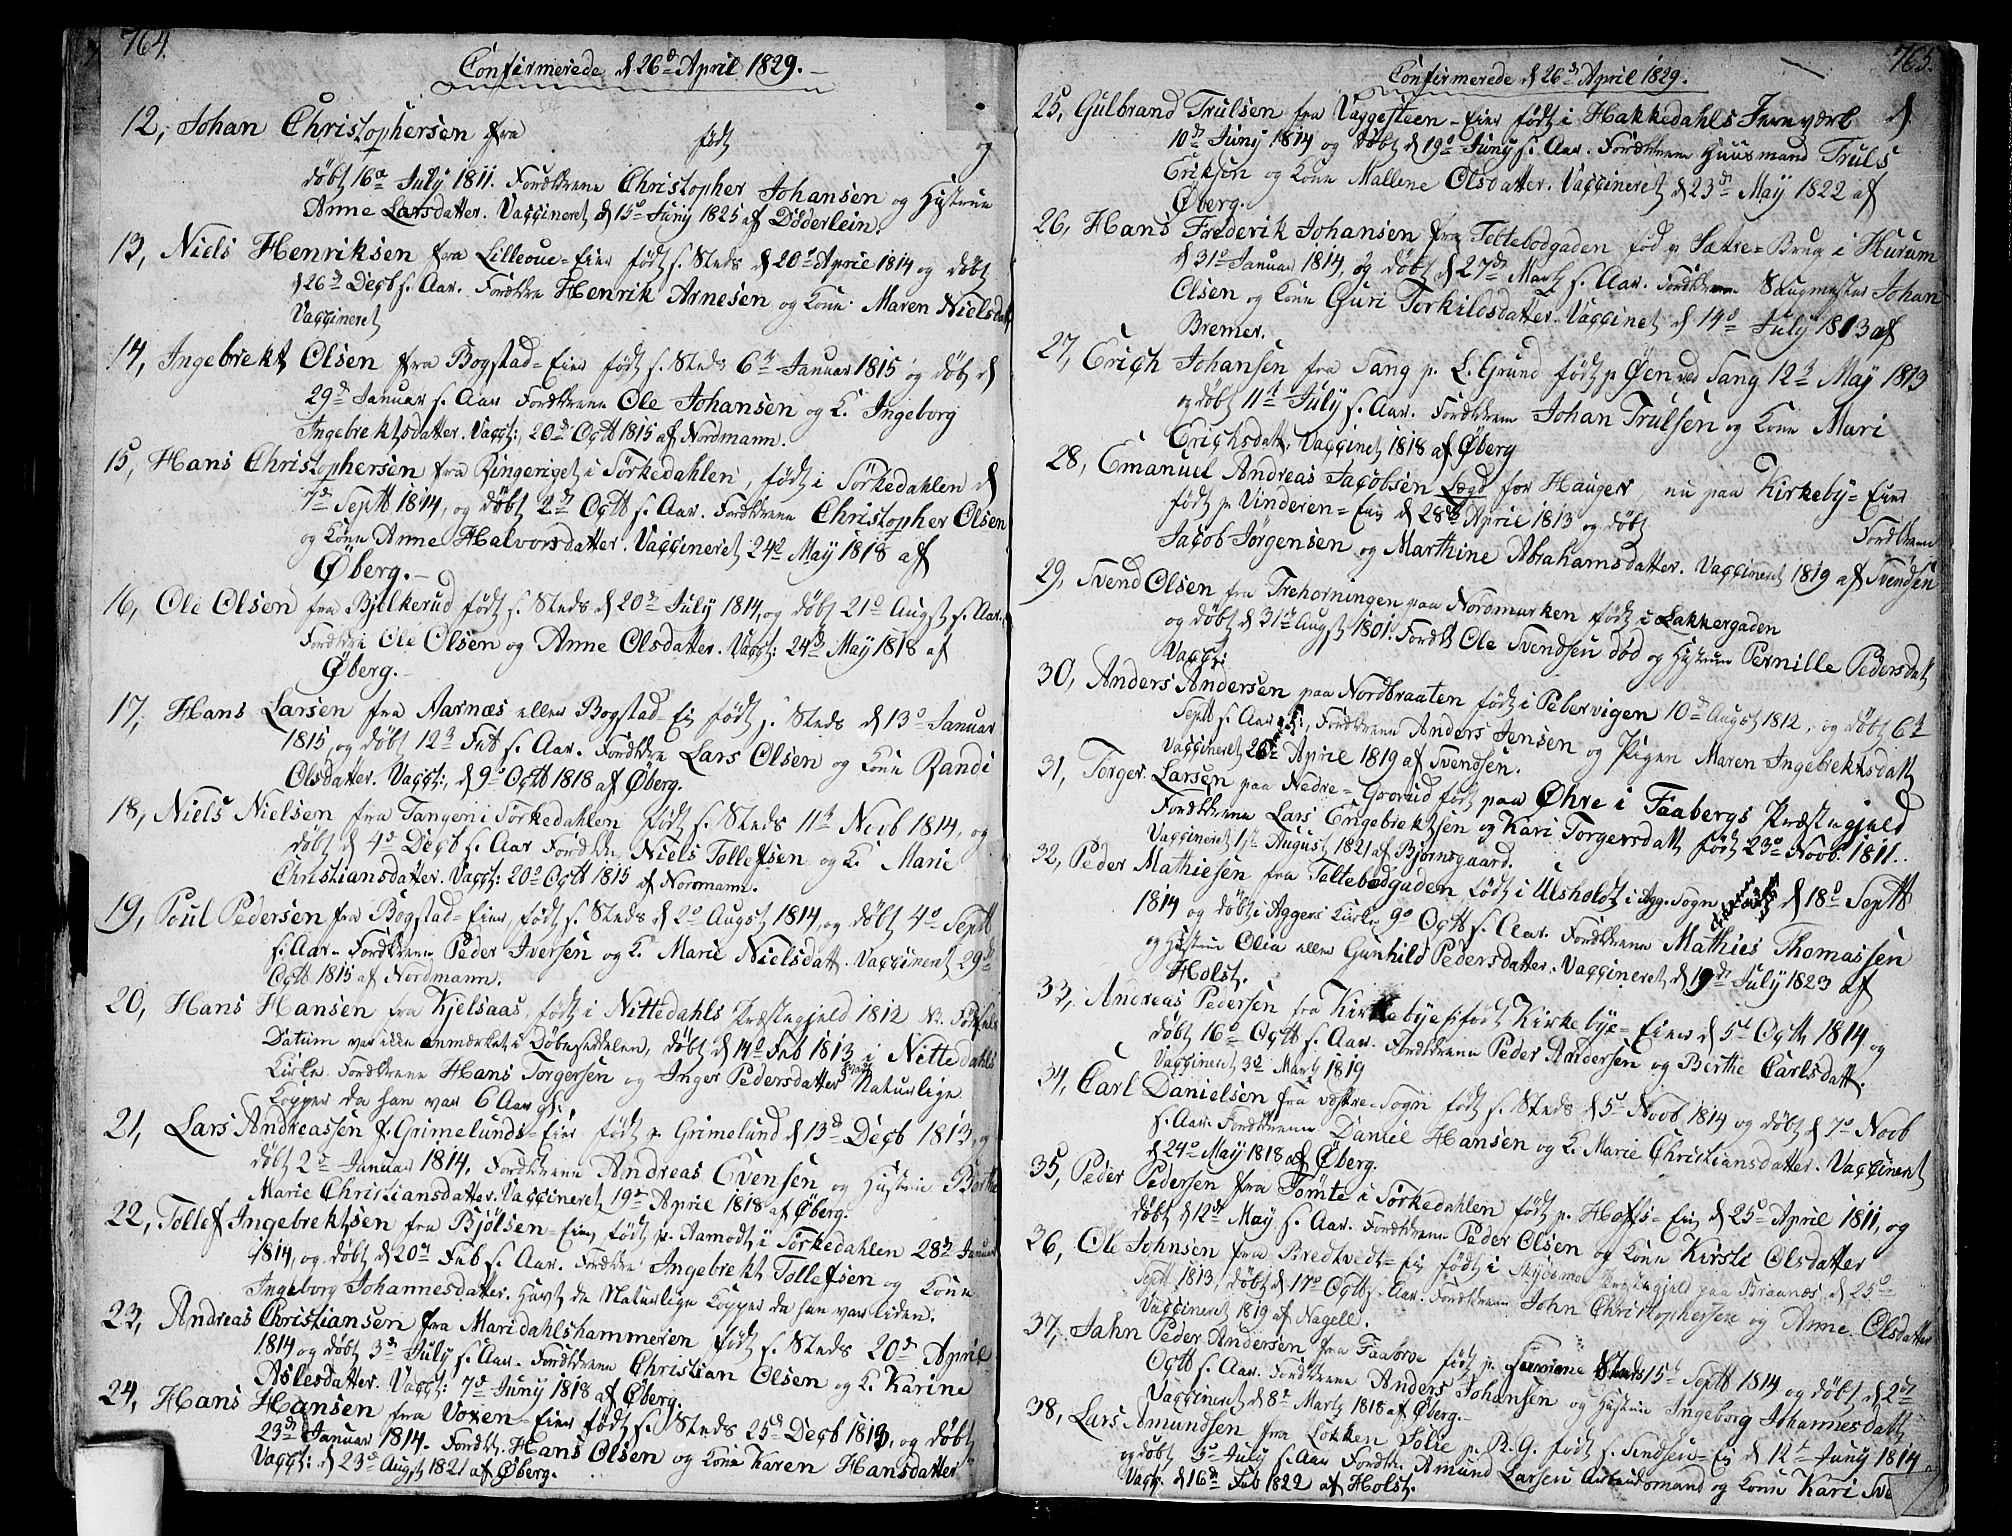 764.
Confirmerede d 26de April 1829.
12, Johan Christophersen fra født og
døbt 16de July 1811. Forældrene Christopher Johansen og Hustrue
Anne Larsdatter. Vaccineret d 15de Juny 1825 af Døderlein.
13, Niels Henriksen fra Lilleoue-Eier født s. Steds d 20de April 1814 og døbt
d 26de Decb s. Aar. Forældre Henrik Arnesen og Kone Maren Nielsdatt
Vaccineret
14, Ingebrekt Olsen fra Bogstad-Eier født s. Steds 6te Januar 1815 og døbt d
29de Januar s. Aar Forældrene Ole Johansen og K. Ingeborg
Ingebrektsdatter. Vacct: 20de Octt 1815 af Nordmann.
15, Hans Christophersen fra Ringeriget i Sørkedahlen, født i Sørkedahlen d
7de Septt 1814, og døbt 2de Octt s. Aar. Forældrene Christopher Olsen
og Kone Anne Halvorsdatter. Vaccineret 24de May 1818 af
Øberg.
16, Ole Olsen fra Bjelkerud født s. Steds d 20de July 1814, og døbt 21de Augst s. Aar.
Forældre Ole Olsen og Anne Olsdatter. Vacct: 24de May 1818 af
Øberg.
17, Hans Larsen fra Aarnæs eller Bogstad-Ei født s. Steds d 13de Januar
1815, og døbt 12te Feb s. Aar. Forældre Lars Olsen og Kone Randi
Olsdatter. Vacct:, d 9de Octt 1818 af Øberg.
18, Niels Nielsen fra Tangen i Sørkedahlen født s. Steds 11te Novb 1814, og
døbt d 4de Decb s. Aar Forældre Niels Tollefsen og K. Marie
Christiansdatter. Vacct: 20de Octt 1815 af Normann.
19, Poul Pedersen fra Bogstad-Eier, født s. Steds d 2de Augst 1814, og døbt 4de Septt
s. Aar. Forældrene Peder Iversen og K. Marie Nielsdatt. Vaccineret 29de
Octt 1815 af Nordmann.
20, Hans Hansen fra Kjelsaas, født i Nittedahls Præstegjeld 1812 NB. Fødsels
Datum var ikke anmærket i Døbeseddelen, døbt d 14de Feb 1813 i Nittedahls
Kirke. Forældrene Hans Torgersen og Inger Pedersdatter havt Naturlige
Kopper da han var 6 Aar gl:
21, Lars Andreassen f. Grimelunds-Eier født p. Grimelund d 13de Decb 1813, og
døbt 2de Januar 1814. Forældrene Andreas Evensen og Hustrue Berthe
Marie Christiansdatter. Vaccineret 19de April 1818 af Øberg.
22, Tollef Ingebrektsen fra Bjølsen-Eier, født p. Aamodt i Sørkedahlen 28de Januar
1814, og døbt d 20de Feb s. Aar. Forældre Ingebrekt Tollefsen og Kone
Ingeborg Johannesdatter. Havt de Naturlige Kopper da han var liden.
23, Andreas Christiansen fra Maridahlshammeren født s. Steds 20de April
1814 og døbt 3de July s. Aar. Forældrene Christian Olsen og K. Karine
Aslesdatter. Vacct: 7de Juny 1818 af Øberg.
24, Hans Hansen fra Voxen-Eier født s. Steds 25de Decb 1813, og døbt
23de Januar 1814. Forældr. Hans Olsen og Kone Karen Hansdatter
Vacct: d 23de Augst 1821 af Øberg.
765.
Confirmerede d 26de April 1829.
25, Gulbrand Trulsen fra Vaggesteen-Eier født i Hakkedahls Jernværk d
10de Juny 1814 og døbt d 19de Juny s. Aar. Forældrene Huusmand Truls
Eriksen og Kone Mallene Olsdatter. Vaccineret d 23de May 1822 af
Øberg.
26, Hans Frederik Johansen fra Teltebodgaden fød p. Sætre-Brug i Hurum
d 31de Januar 1814, og døbt d 27de Martz s. Aar. Forældrene Saugmester Johan
Olsen og Kone Guri Terkildsdatter. Vaccinet d 14de July 1813 af
Bremer.
27, Erich Johansen fra Sang p. L. Grund født p. Øen ved Sang 12te May 1813
og døbt 11te July s. Aar. Forældrene Johan Trulsen og Kone Mari
Erichsdatt, Vaccinet 1818 af Øberg
28, Emanuel Andreas Jacobsen Lægd for Hauger, nu paa Kirkeby-Eier
født p. Vinderen-Eie d 28de April 1813 og døbt Forældrene
Jacob Jørgensen og Marthine Abrahamsdatter. Vaccineret 1819 af Svendsen
29, Svend Olsen fra Trehorningen paa Nordmarken født i Lakkergaden
og døbt d 31te Augst 1801. Forældr Ole Svendsen død og Hustrue Pernille Pedersdat
Vacci:
30, Anders Andersen paa Nordbraaten født i Pebervigen 10de Augst 1812, og døbt 6te
Septt s. Aar. Forældrene Anders Jensen og Pigen Maren Ingebrektsdatt
Vaccineret 26de April 1819 af Svendsen.
31, Torger Larsen paa Nedre-Grorud født paa Øhre i Faabergs Præstegjeld
Forældrene Lars Engebrektsen og Kari Torgersdatt født 23de Novb. 1811.
Vaccineret 1ste August 1821 af Bjørnsgaard.
32, Peder Mathiesen fra Teltebodgaden født i Ulsholdt i Agg. Sogn d 18de Septt
1814 og døbt i Aggers Kirke 9de Octt s. Aar. Forældrene Mathies Thomassen
og Hustrue Olia eller Gunhild Pedersdatter. Vaccineret d 19de July 1823 af
Holst.
33, Andreas Pedersen fra Kirkebye født Kirkebye-Eier d 5te Octt 1814 og
døbt 16de Octt s. Aar. Forældrene Peder Andersen og Berthe Carlsdatt.
Vaccineret 3de Martz 1819
34, Carl Danielsen fra Vestre-Sogn født s. Steds d 5te Novb 1814 og døbt d 7de Novb
s. Aar. Forældrene Daniel Hansen og K. Marie Christiansdatter. Vaccineret
d 24de May 1818 af Øberg.
35, Peder Pedersen fra Tomte i Sørkedahlen født p. Hoffs-Eie d 25de April 1811, og
døbt d 12te May s. Aar. Forældrene Peder Olsen og Kone Kirsti Olsdatter
36, Ole Johnsen fra Bredtvedt-Eie født i Skydsmo Præstegjeld paa Braanæs d 25de
Septt 1813, døbt d 17de Octt s. Aar. Forældrene John Christophersen og Anne Olsdatter
Vaccineret 1819 af Nagell.
37, Jahn Peder Andersen fra Faabroe født p. Steds 15de Septt 1814 og døbt d 2den
Octt s. Aar. Forældrene Anders Johansen og Hustrue Ingeborg Johannesdatt,
Vaccineret d 8de Martz 1818 af Øberg.
38, Lars Amundsen fra Løkken Solie p. R. G. født s. Eie d 12te Juny 1814
og døbt 3de July s. Aar Forældre Amund Larsen Arbeidsmand og Kone Kari
Vacc. d 16de Feb 1822 af Holst.